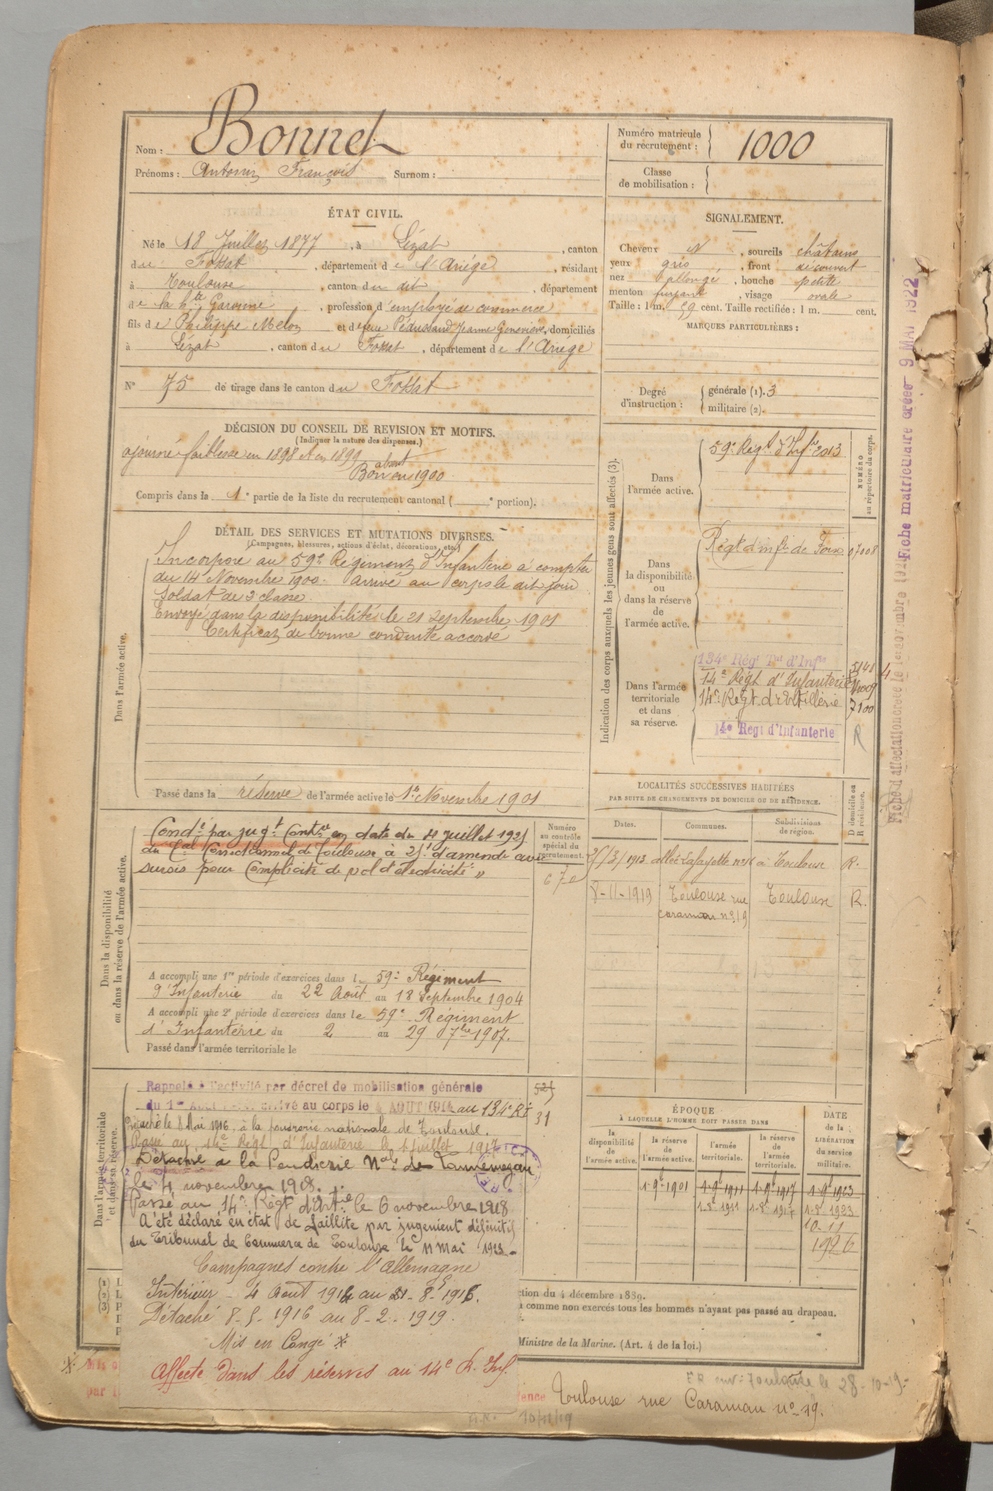 Nom : Bonnet
Prénoms : Antonin François Surnom :
Numéro matricule du recrutement : 1000
Classe de mobilisation :
ÉTAT CIVIL.
Né le 18 Juillet 1877, à Lézat, canton
du Fossat, département de l'Ariège, résidant
à Toulouse, canton du dit, département
de la Hte Garonne, profession d'employé de commerce
fils de Philippe Melon et de feu Jeanne Geneviève, domiciliés
à Lézat, canton du Fossat, département de l'Ariège
N° 75 de tirage dans le canton du Fossat
SIGNALEMENT.
Cheveux , sourcils châtains
yeux gris, front découvert
nez allongé, bouche petite
menton fuyant, visage ovale
Taille : 1 m. 59 cent. Taille rectifiée : 1 m. cent.
MARQUES PARTICULIÈRES :
Degré d'instruction : générale (1). 3
militaire (2).
DÉCISION DU CONSEIL DE REVISION ET MOTIFS.
(Indiquer la nature des dispenses.)
ajourné faiblesse en 1898 et en 1899
absent
Bon en 1900
Compris dans la 1e partie de la liste du recrutement cantonal ( e portion).
DÉTAIL DES SERVICES ET MUTATIONS DIVERSES.
(Campagnes, blessures, actions d'éclat, décorations, etc.)
Dans l'armée active.
Incorporé au 59e Régiment d'Infanterie à compter
du 14 Novembre 1900. Arrivé au corps le dit jour
Soldat de 2e classe.
Envoyé dans la disponibilité le 21 Septembre 1901
Certificat de bonne conduite accordé
Passé dans la réserve de l'armée active le 1er Novembre 1901
Indication des corps auxquels les jeunes gens sont affectés (3).
NUMÉRO au répertoire du corps.
Dans l'armée active.
59e Régt d'Infie 2013
Dans la disponibilité ou dans la réserve de l'armée active.
Régt d'infie de Foix 07008
Dans l'armée territoriale et dans sa réserve.
134e Régt Tal d'Infie 5141
14e Régt d'Infanterie
14e Régt d'Artillerie 7100
14e Regt d'Infanterie R
Fiche matriculaire créée 9 MAI 1922
LOCALITÉS SUCCESSIVES HABITÉES
PAR SUITE DE CHANGEMENTS DE DOMICILE OU DE RÉSIDENCE.
Dates. Communes. Subdivisions de région. D domicile ou R résidence.
/3/1913 allée Lafayette à Toulouse R.
8-11-1919 Toulouse rue Caraman n° 19 Toulouse R.
Dans la disponibilité ou dans la réserve de l'armée active.
Numéro au contrôle spécial du recrutement.
670
Condé par jugt Contre en date du 4 Juillet 1921
du Tal Correctionnel de Toulouse à 25f d'amende avec
sursis pour Complicité de vol d'électricité "
A accompli une 1re période d'exercices dans le 59e Régiment
d'Infanterie du 22 Août au 18 Septembre 1904
A accompli une 2e période d'exercices dans le 59e Régiment
d'Infanterie du 2 au 29 7bre 1907.
Passé dans l'armée territoriale le
Dans l'armée territoriale et dans sa réserve.
Rappelé à l'activité par décret de mobilisation générale
du 1er Août arrivé au corps le 4 AOUT 1914 au 134e RI
31
Détaché le 8 Mai 1916, à la poudrerie nationale de Toulouse.
Passé au 14e Régt d'Infanterie le 1 juillet 1917
Détaché à la Poudrerie Nale de Lannemezan
le 4 novembre 1918.
Passé au 14e Régt d'Artie le 6 novembre 1918
A été déclaré en état de faillite par jugement définitif
du Tribunal de Commerce de Toulouse le 11 Mai 1923.
Campagnes contre l'Allemagne
Intérieur - 4 Août 1914 au 8-5 1916.
Détaché 8-5-1916 au 8-2-1919.
Mis en Congé
Affecté dans les réserves au 14e R. Inf.
ÉPOQUE
À LAQUELLE L'HOMME DOIT PASSER DANS
la disponibilité de l'armée active. la réserve de l'armée active. l'armée territoriale. la réserve de l'armée territoriale.
DATE de la LIBÉRATION du service militaire.
1-9e-1901 1-9e-1911 1-9e-1917 1-9e-1923
10-11
1926
ction du 4 décembre 1889.
à comme non exercés tous les hommes n'ayant pas passé au drapeau.
Ministre de la Marine. (Art. 4 de la loi.)
Toulouse le 28-10-19
Toulouse rue Caraman n° 19.
10/12/19